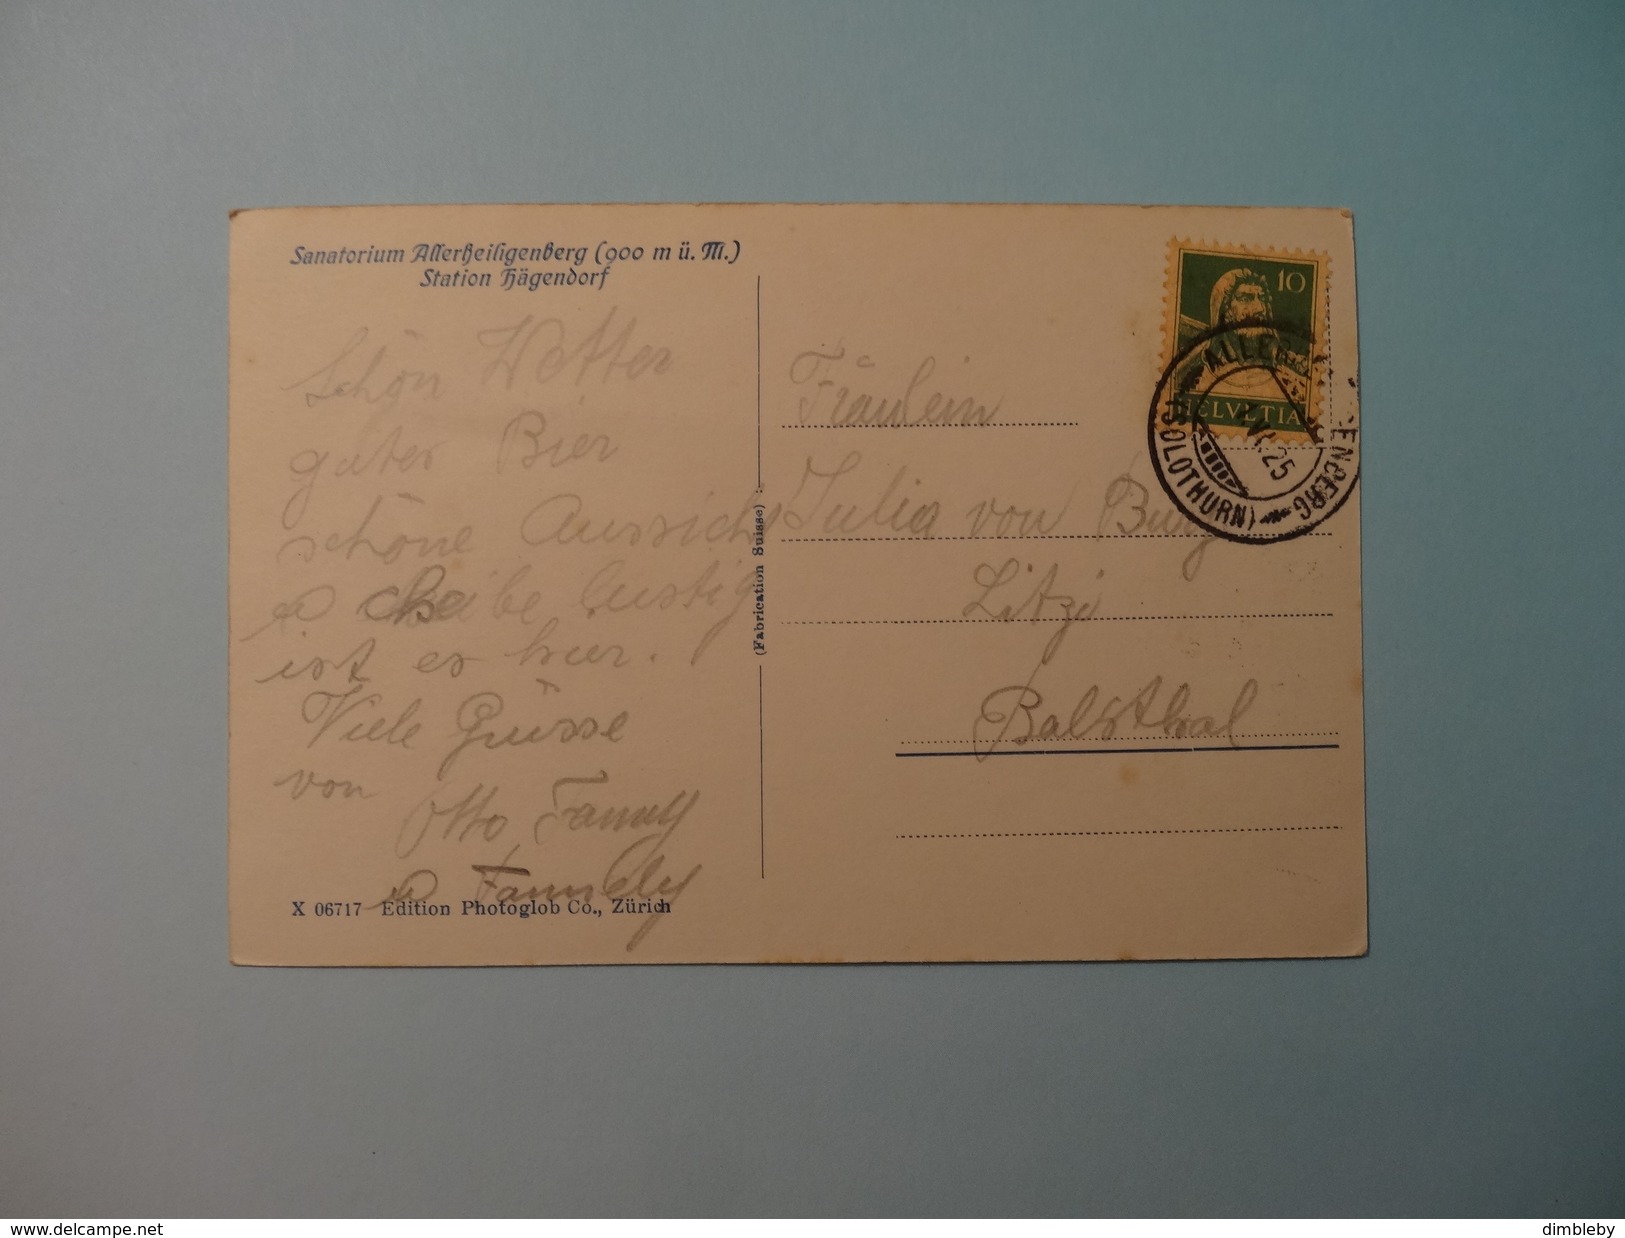 Sanatorium Allerheiligenberg (900 m ü. M.)
Station Hägendorf
Schön Wetter
guter Bier
schöne Aussicht
scheibe lustig
ist es hier.
Viele Grüsse
von
Otto Fanny
X 06717 Edition Photoglob Co., Zürich
(Fabrication Suisse)
10
HELVETIA
ALLERHEILIGENBERG
VI.25
(SOLOTHURN)
Fräulein
Julia von Burg
Litzi
Balsthal
www.delcampe.net
dimbleby